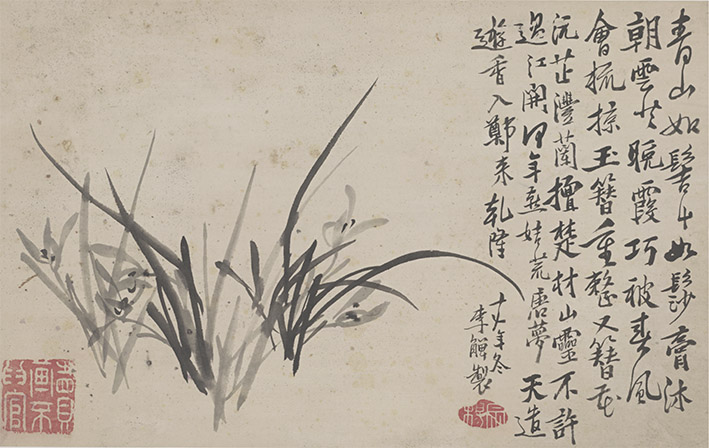 青山如髻如膏沐
朝雲共晚霞巧被春風
會梳掠玉簪重整又簪花
沅芷澧蘭擅楚材山靈不許
過江開何年燕姞荒唐夢天
香入鄭來乾隆
年冬
李鱓製